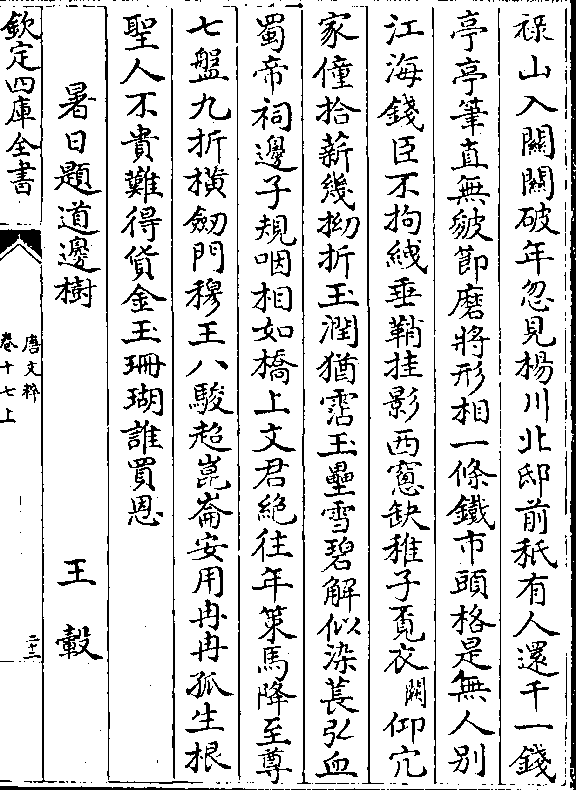 祿山入關關破年忽見楊川北邸前秖有人還千一錢
亭亭筆直無皴節磨將形相一條鐵市頭格是無人别
江海錢臣不拘絏垂鞘挂影西窻缺稚子覔衣闕仰宂
家僮拾薪幾拗折玉潤猶霑玉壘雪碧鮮似染萇弘血
蜀帝祠邊子規咽相如橋上文君絶往年策馬降至尊
七盤九折橫劒門穆王八駿超崑崙安用冉冉孤生根
聖人不貴難得貨金玉珊瑚誰買恩
暑日題道邊樹　王轂
欽定四庫全書
唐文粹
卷十七上
二十二